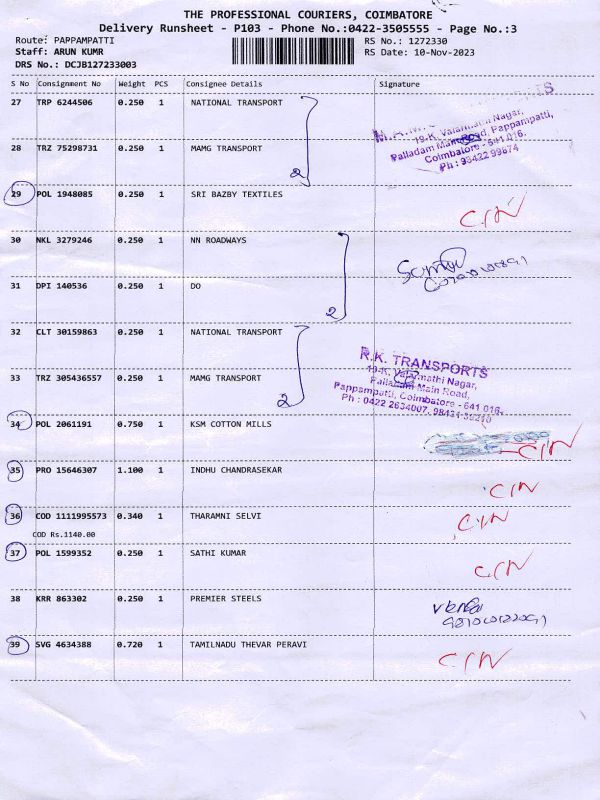 THE PROFESSIONAL COURIERS, COIMBATORE
Delivery Runsheet - P103 - Phone No.:0422-3505555 - Page No.:3
Route: PAPPAMPATTI RS No.: 1272330
Staff: ARUN KUMR RS Date: 10-Nov-2023
DRS No.: DCJB127233003
S No Consignment No Weight PCS Consignee Details Signature
27 TRP 6244506 0.250 1 NATIONAL TRANSPORT
19-K, Valarmathi Nagar,
Palladam Main Road, Pappampatti,
Coimbatore - 641 016.
Ph : 98422 99674
28 TRZ 75298731 0.250 1 MAMG TRANSPORT
2
29 POL 1948085 0.250 1 SRI BAZBY TEXTILES
C/N
30 NKL 3279246 0.250 1 NN ROADWAYS
31 DPI 140536 0.250 1 DO
2
32 CLT 30159863 0.250 1 NATIONAL TRANSPORT
R.K. TRANSPORTS
19-K, Valarmathi Nagar,
Palladam Main Road,
Pappampatti, Coimbatore - 641 016.
Ph : 0422 2634007, 98431 39210
33 TRZ 305436557 0.250 1 MAMG TRANSPORT
2
34 POL 2061191 0.750 1 KSM COTTON MILLS
C/N
35 PRO 15646307 1.100 1 INDHU CHANDRASEKAR
C/N
36 COD 1111995573 0.340 1 THARAMNI SELVI
C/N
COD Rs.1140.00
37 POL 1599352 0.250 1 SATHI KUMAR
C/N
38 KRR 863302 0.250 1 PREMIER STEELS
39 SVG 4634388 0.720 1 TAMILNADU THEVAR PERAVI
C/N